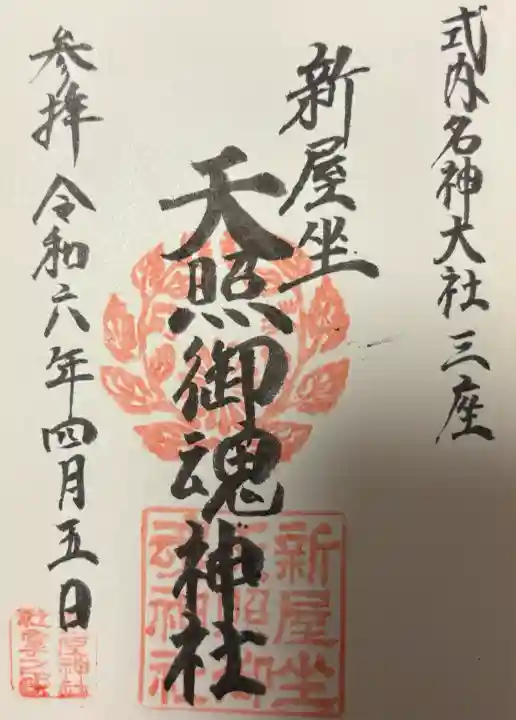 式内名神大社三座
新屋坐
天照御魂神社
参拝令和六年四月五日
新屋坐
天照御
魂神社